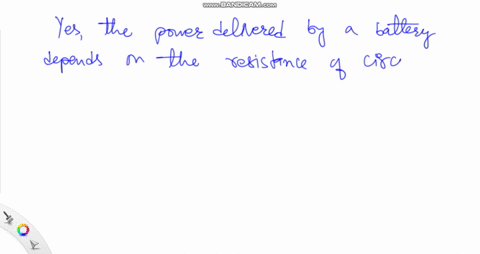 WWW.BANDICAM.COM
Yes, the power delivered by a battery
depends on the resistance of circ